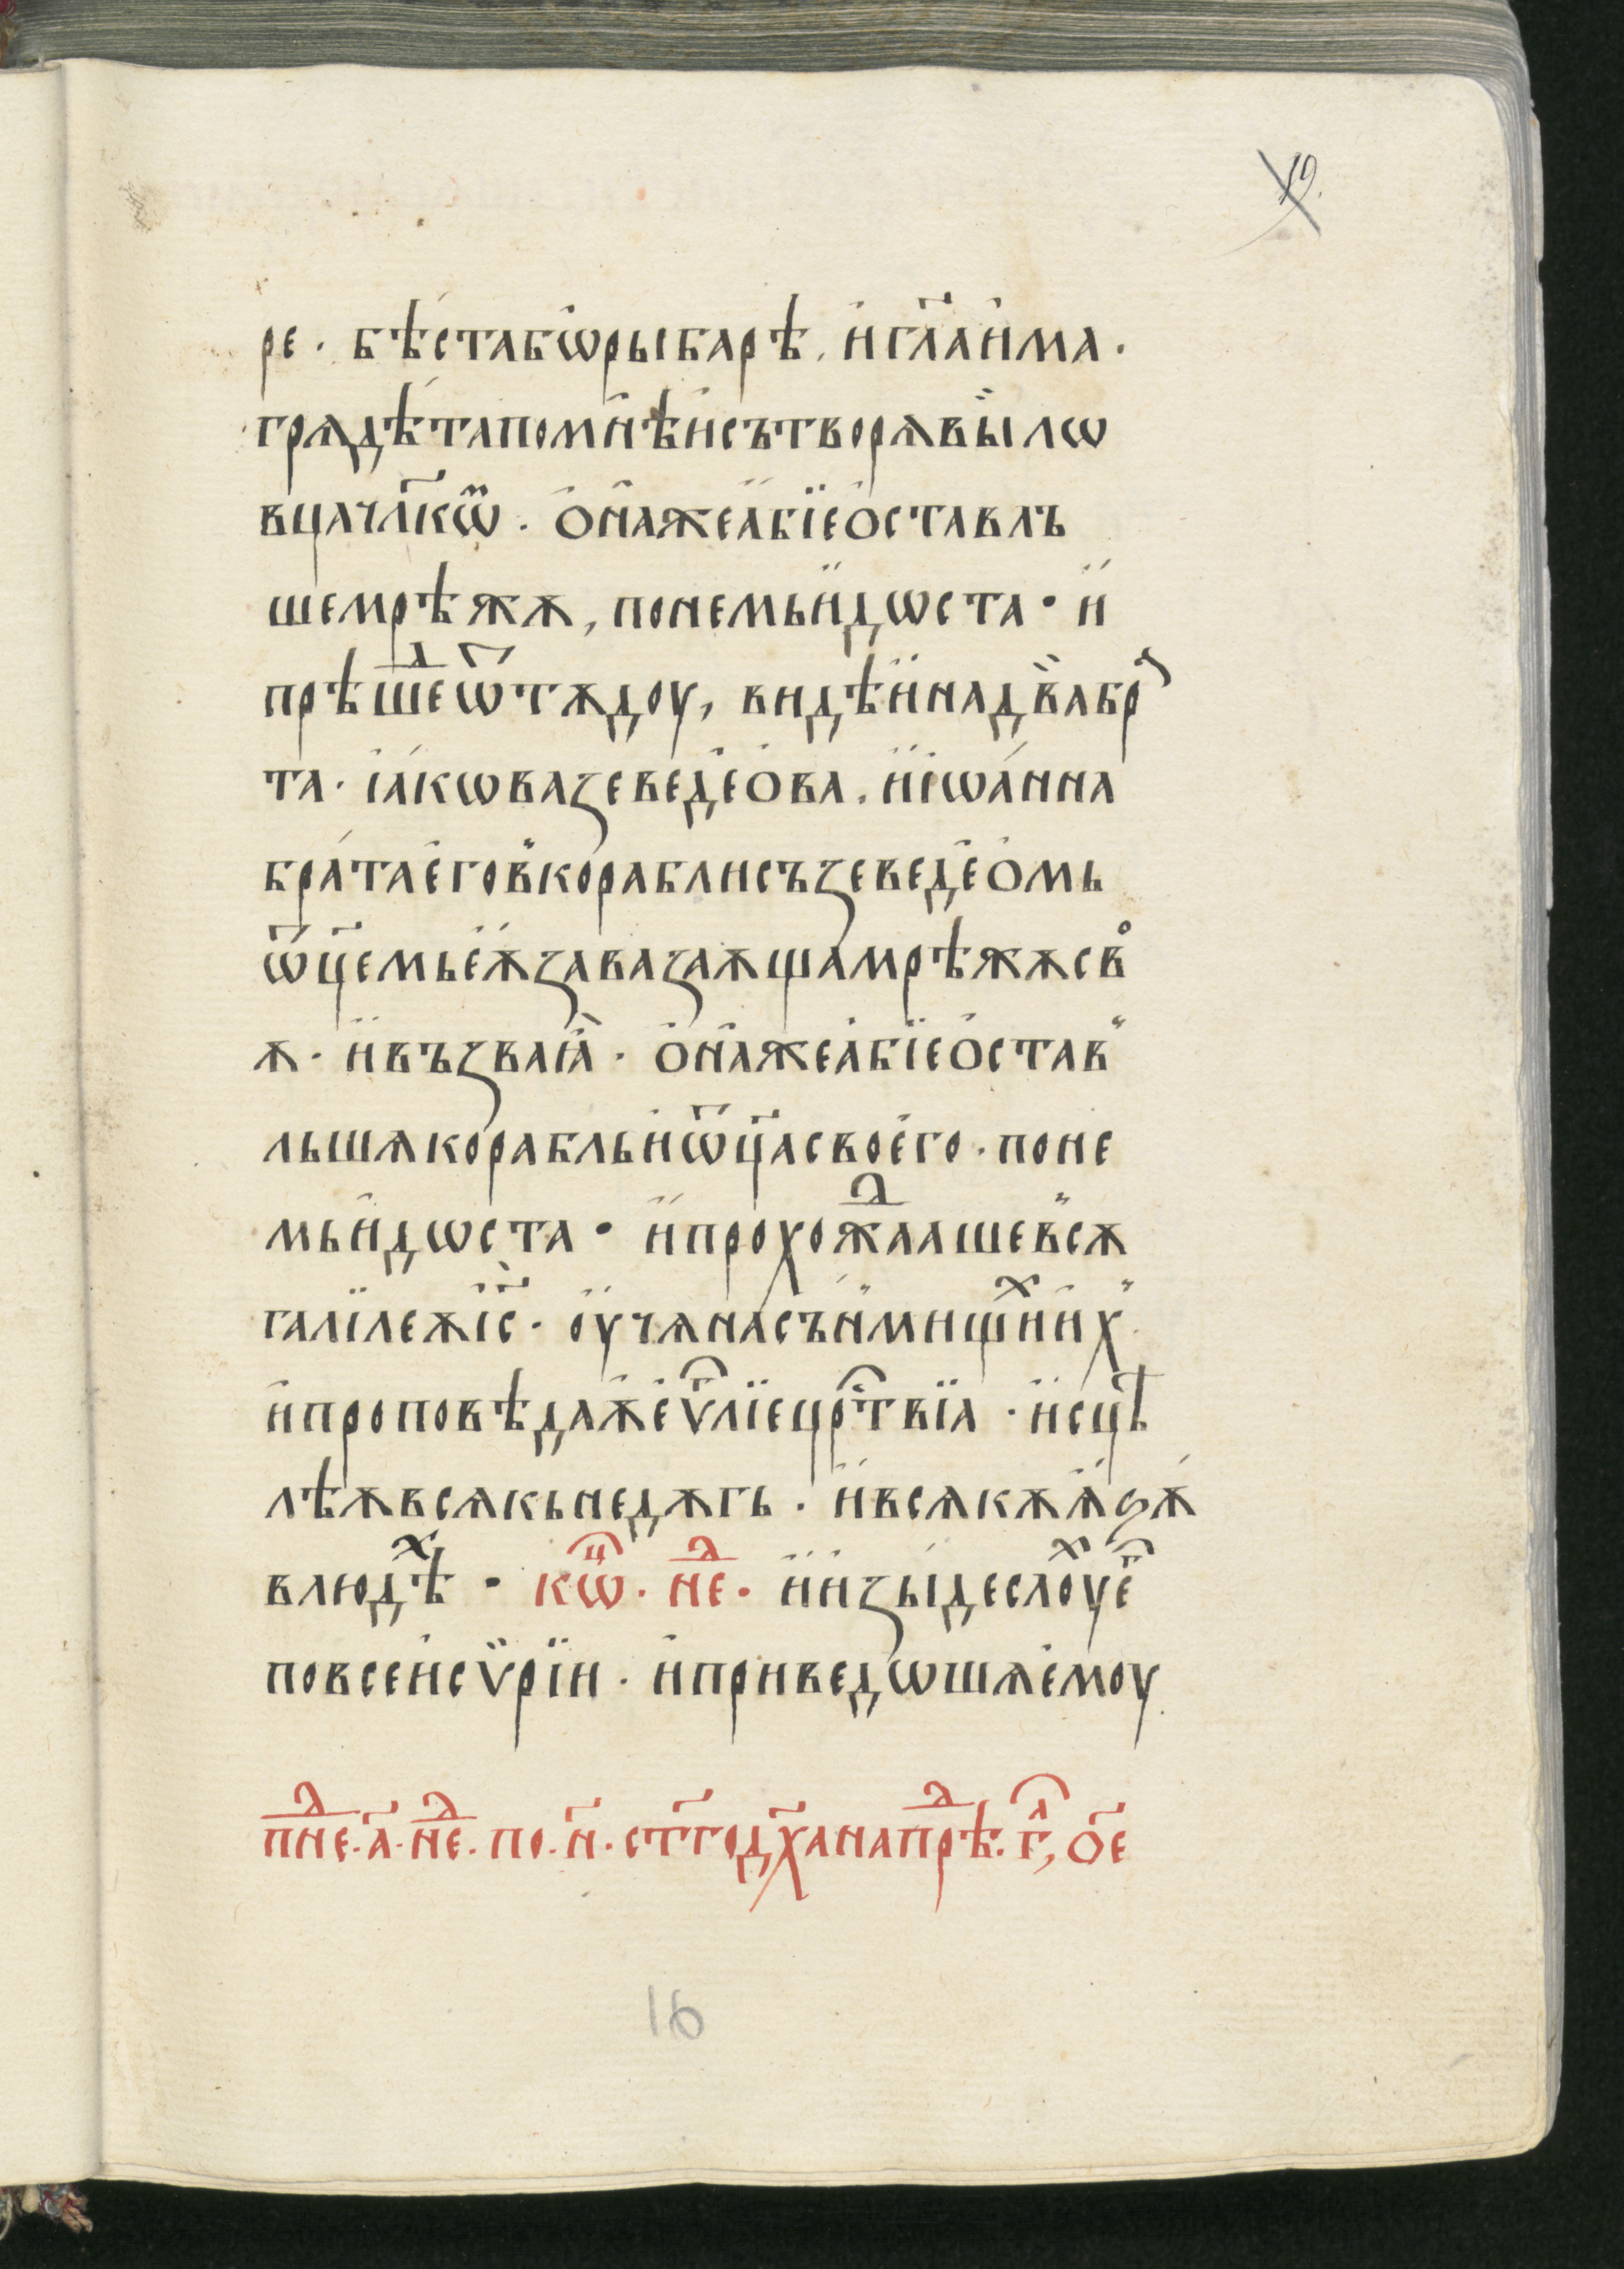 19.
ре · бѣ́ста бѡ рыбарѣ . и҆ гл҃а и҆ма ·
грѧдѣ́та по мн҆ѣ и҆ сътворѧ вы̀ лѡ
вца чл҃кѡ̈ · о҆на̑ же а҆бїе о҆ставль
ше мрѣжѫ , по немь и҆дѡста · и҆
прѣшеⷣ ѿтѫдоу , видѣ и҆на два̀ браⷮ
та · і҆а́кѡва зеведе́ова . и҆ і҆ѡа́нна
бра́та е҆го в̾ корабли съ зеведе́омь
ѿц҃емь е҆ѫ завазаѫща мрѣжѫ своⷪ
ѫ · и҆ възва ꙗ҆̀ · о҆на̑ же а҆бїе о҆став̾
льшѧ корабль и҆ ѿц҃а своего . по не
мь и҆дѡста · и҆ прохожⷣааше в̾сѫ
галїлеѫ і҆с҃ · оу҆чѧ на съни́мищиⷯ и҆х̾ .
и҆ проповѣдаѫ е҆ѵⷢ҇лїе црⷭ҇твїа · и҆сцѣ
лѣѫ всѧкь недѫгь · и҆ всѧкѫ ѧ҆ѕѫ
в людѣⷯ · кѡⷰ · неⷣ · и҆ и҆зы́де слоуⷯ е҆ⷢ҇
по всеи сѵ̈рїи · и҆ приведѡшѧ е҆моу
пнеⷣ · а҃ · неⷣ · по · н҃ · ст҃го дх҃а на прѣⷣ · г҃л , о҃е
16